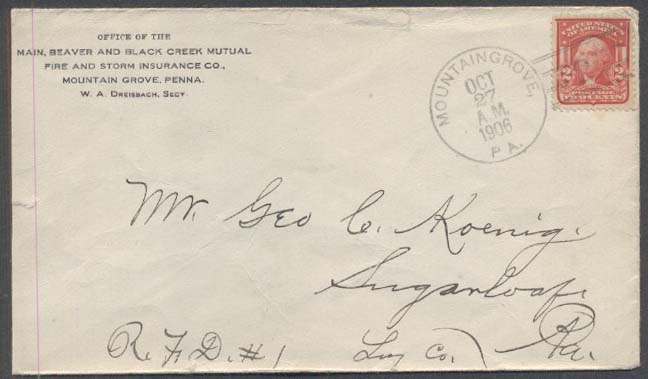 OFFICE OF THE
MAIN, BEAVER AND BLACK CREEK MUTUAL
FIRE AND STORM INSURANCE CO.,
MOUNTAIN GROVE, PENNA.
W. A. DREISBACH, SECY
MOUNTAINGROVE,
OCT
27
A.M.
1906
PA.
UNITED STATES
OF AMERICA
2 2
POSTAGE
TWO CENTS
Mr. Geo C. Koenig.
Sugarloaf,
R. F. D. #1 Luz Co., Pa.